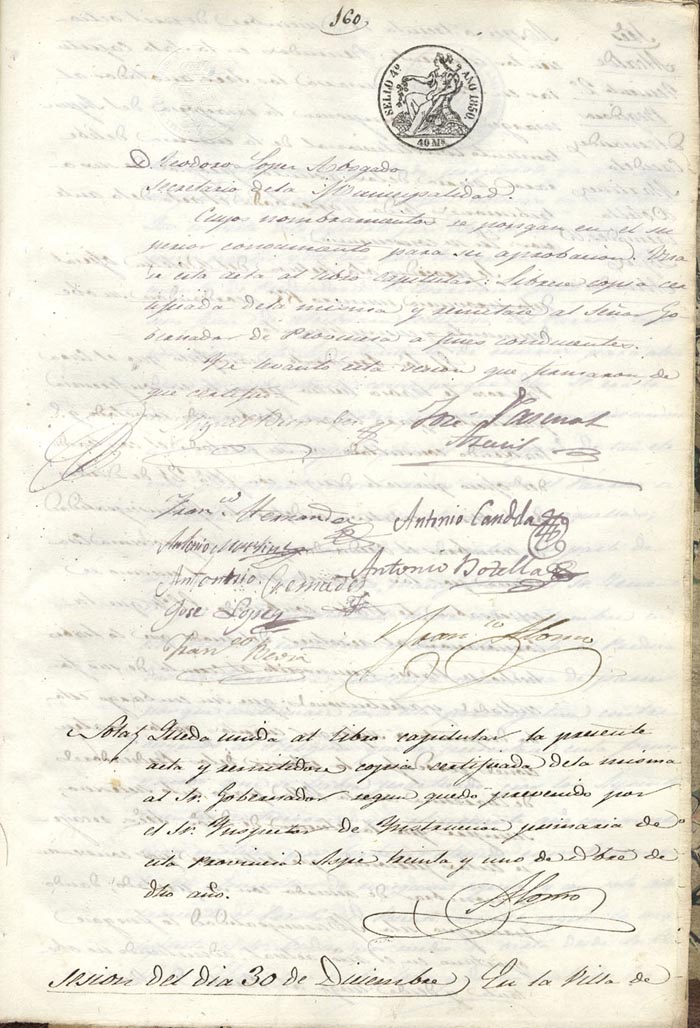 160.
SELLO 4º AÑO 1850.
40 Ms
D. Teodoro Lopez Abogado
Secretario dela Municipalidad.
Cuyos nombramientos se pongan en el su
perior conocimiento para su aprobacion. Unase
a esta acta al libro capitular: Librese copia cer
tificada dela misma y remitase al Señor Go
bernador de Provincia a fines conducentes.
Se levantó esta sesion que firmaron, de
que certifico.
José Pascual
Franco Hernandez
Antonio Candela
Antonio Martinez
Antonio Botella
Antonio Cremades
José Lopez
Franco Alonso
Franco
Nota Queda unida al libro capitular la presente
acta y remitidore copia certificada dela misma
al Sr. Gobernador segun queda prevenido por
el Sr. Inspector de Instruccion primaria de
esta Provincia. Aspe treinta y uno de Dbre de
dho año.
Alonso
Sesion del dia 30 de Diciembre En la Villa de